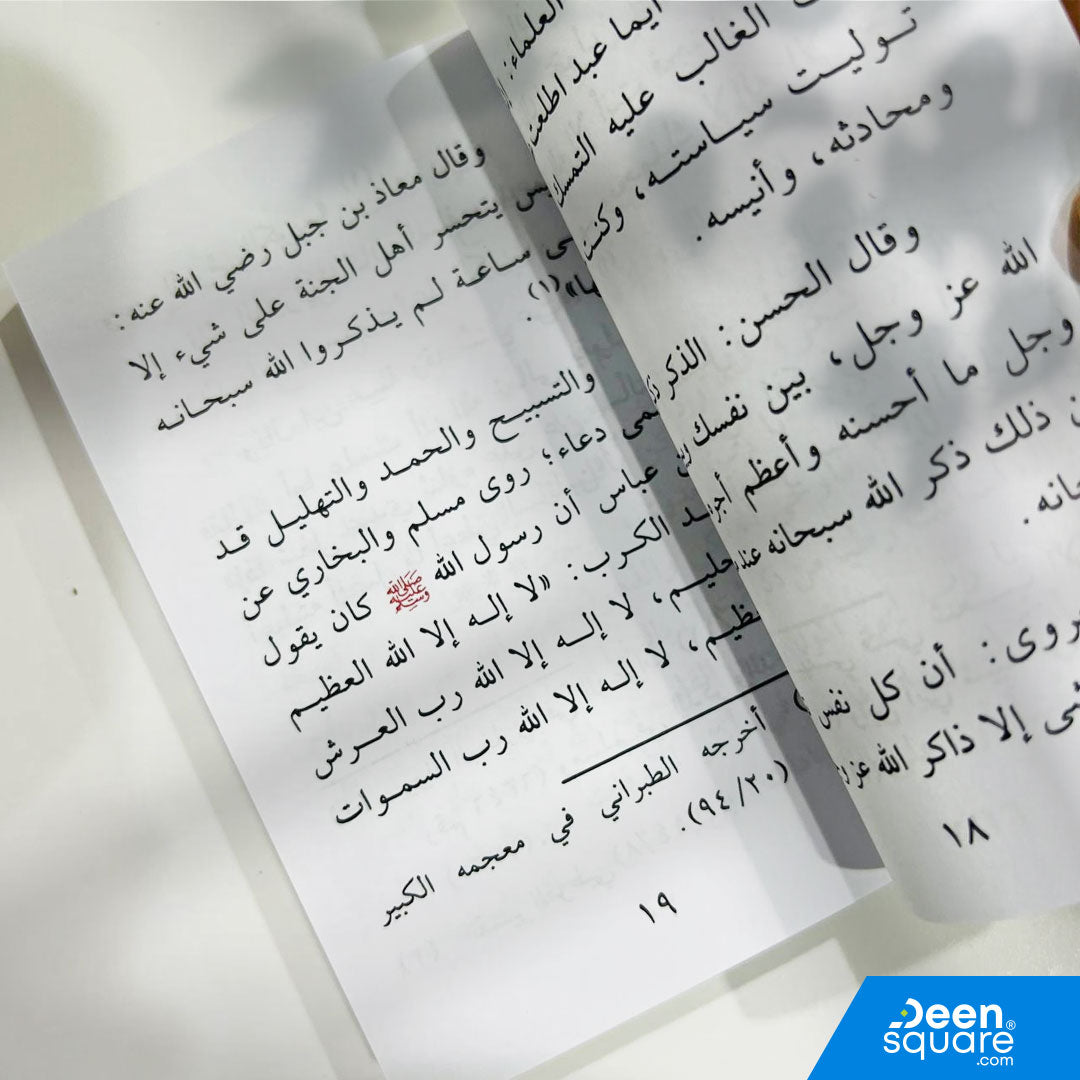 العلماء:
أيما عبد اطلعت
الغالب عليه التمسك
توليت سياسته، وكنت
ومحادثه، وأنيسه.
وقال الحسن: الذكر
الله عز وجل، بين نفسك
وجل ما أحسنه وأعظم
ذلك ذكر الله سبحانه عند
أن كل نفس
إلا ذاكر الله عز
١٨
وقال معاذ بن جبل رضي الله عنه:
يتحسر أهل الجنة على شيء إلا
ساعة لم يذكروا الله سبحانه
(١).
والتسبيح والحمد والتهليل قد
دعاء؛ روى مسلم والبخاري عن
عباس أن رسول الله ﷺ كان يقول
الكرب: «لا إله إلا الله العظيم
لا إله إلا الله رب العرش
لا إله إلا الله رب السموات
أخرجه الطبراني في معجمه الكبير
(٩٤/٢٠).
١٩
Deen®
square
.com